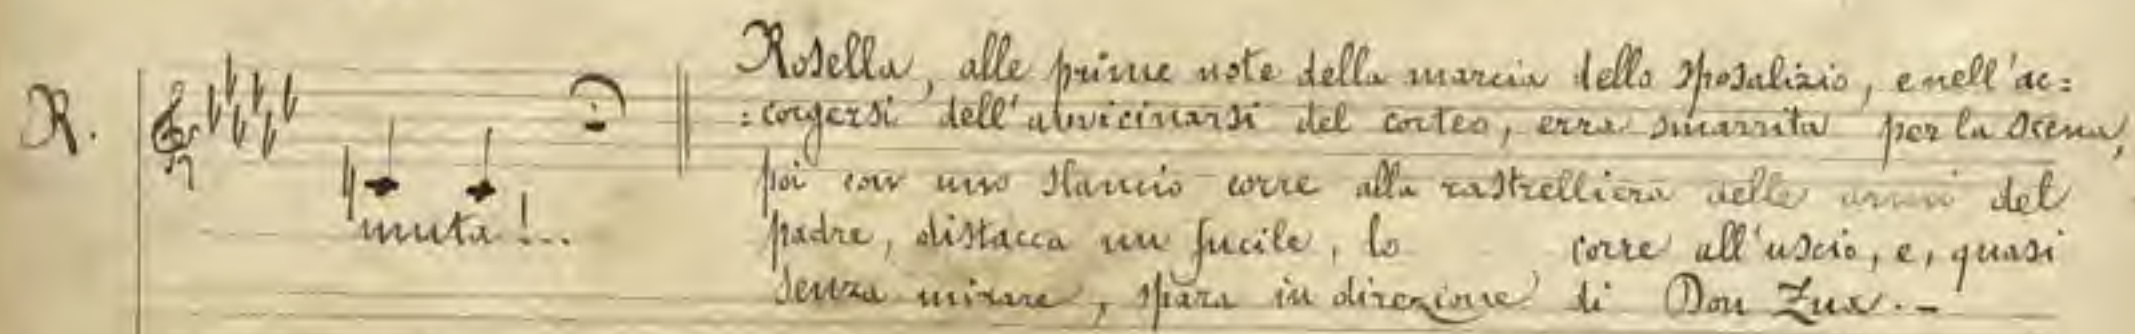 Rosella, alle prime note della marcia dello sposalizio, e nell'ac=
R.
=corgersi dell'avvicinarsi del corteo, erra smarrita per la scena,
poi con uno slancio corre alla rastrelliera delle armi del
muta!...
padre, distacca un fucile, lo corre all'uscio, e, quasi
senza mirare, spara in direzione di Don Zua.-